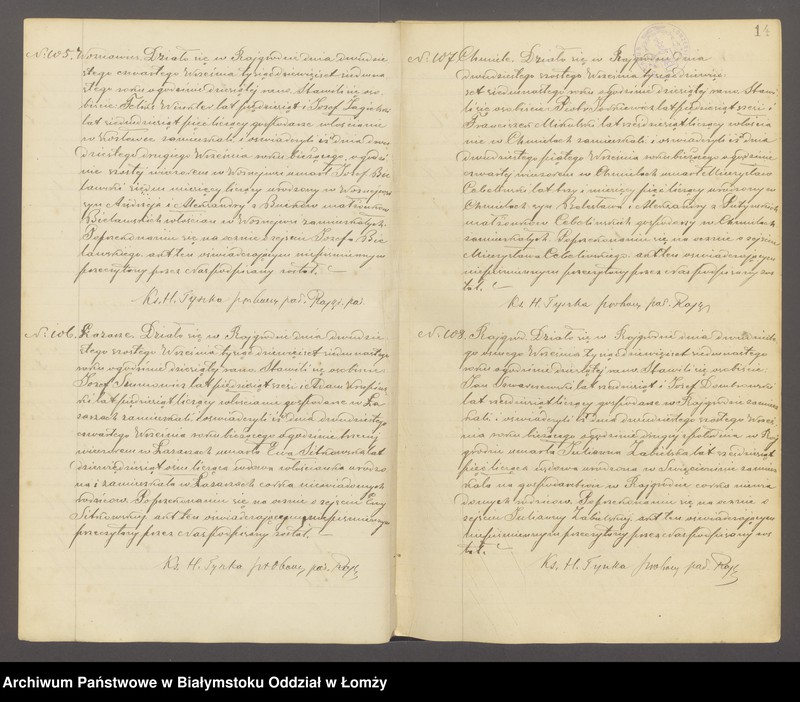 14
№ 105. Woźnawieś. Działo się w Rajgrodzie dnia dwudzie
stego czwartego Września tysiąc dziewięćset siedemna
stego roku o godzinie dziesiątej rano. Stawili się oso
biście Feliks lat pięćdziesiąt i Józef
lat siedemdziesiąt pięć liczący gospodarze włościanie
w zamieszkali i oświadczyli iż dnia dwu
dziestego drugiego Września roku bieżącego, o godzi
nie szóstej wieczorem w Woźnejwsi umarł Józef Bie
lawski siedem miesięcy liczący urodzony w Woźnejwsi
syn Andrzeja i Aleksandry z małżonków
Bielawskich włościan w Woźnejwsi zamieszkałych.
Po przekonaniu się naocznie o zejściu Józefa Bie
lawskiego akt ten oświadczającym niepiśmiennym
przeczytany przez Nas podpisany został.
Ks. H. Tyszka proboszcz par. Rajgr. par.
№ 106. Łazarze. Działo się w Rajgrodzie dnia dwudzie
stego szóstego Września tysiąc dziewięćset siedemnastego
roku o godzinie dziesiątej rano. Stawili się osobiście
Józef lat pięćdziesiąt sześć i Adam
lat pięćdziesiąt liczący rolnicy gospodarze w Ła
zarzach zamieszkali i oświadczyli iż dnia dwudziestego
czwartego Września roku bieżącego o godzinie trzeciej
wieczorem w Łazarzach umarła Ewa Sitkowska lat
dziewięćdziesiąt ośm licząca wdowa włościanka urodzo
na i zamieszkała w Łazarzach córka niewiadomych
rodziców. Po przekonaniu się naocznie o zejściu Ewy
Sitkowskiej akt ten oświadczającym niepiśmiennym
przeczytany przez Nas podpisany został.
Ks. H. Tyszka proboszcz par. Rajg.
№ 107. Chmiele. Działo się w Rajgrodzie dnia
dwudziestego szóstego Września tysiąc dziewię
ćset siedemnastego roku o godzinie dziesiątej rano. Stawi
li się osobiście Piotr lat pięćdziesiąt sześć i
Franciszek Mikulski lat sześćdziesiąt liczący włościa
nie w Chmielach zamieszkali i oświadczyli iż dnia
dwudziestego piątego Września roku bieżącego o godzinie
czwartej wieczorem w Chmielach umarł Mieczysław
lat trzy i miesięcy pięć liczący urodzony w
Chmielach syn Bolesława i Aleksandry z
małżonków gospodarzy w Chmielach
zamieszkałych. Po przekonaniu się naocznie o zejściu
Mieczysława akt ten oświadczającym
niepiśmiennym przeczytany przez Nas podpisany zos
tał.
Ks. H. Tyszka proboszcz par. Rajg.
№ 108. Rajgród. Działo się w Rajgrodzie dnia dwudzieste
go ósmego Września tysiąc dziewięćset siedemnastego
roku o godzinie dziesiątej rano. Stawili się osobiście:
Jan lat sześćdziesiąt i Józef Dombrowski
lat sześćdziesiąt liczący gospodarze w Rajgrodzie zamiesz
kali i oświadczyli iż dnia dwudziestego szóstego Wrześ
nia roku bieżącego o godzinie drugiej z południa w Raj
grodzie umarła Julianna Zabielska lat sześćdziesiąt
pięć licząca wdowa urodzona w zamiesz
kała na gospodarstwie w Rajgrodzie córka niewia
domych rodziców. Po przekonaniu się naocznie o
zejściu Julianny Zabielskiej akt ten oświadczającym
niepiśmiennym przeczytany przez Nas podpisany zos
tał.
Ks. H. Tyszka proboszcz par. Rajg.
Archiwum Państwowe w Białymstoku Oddział w Łomży